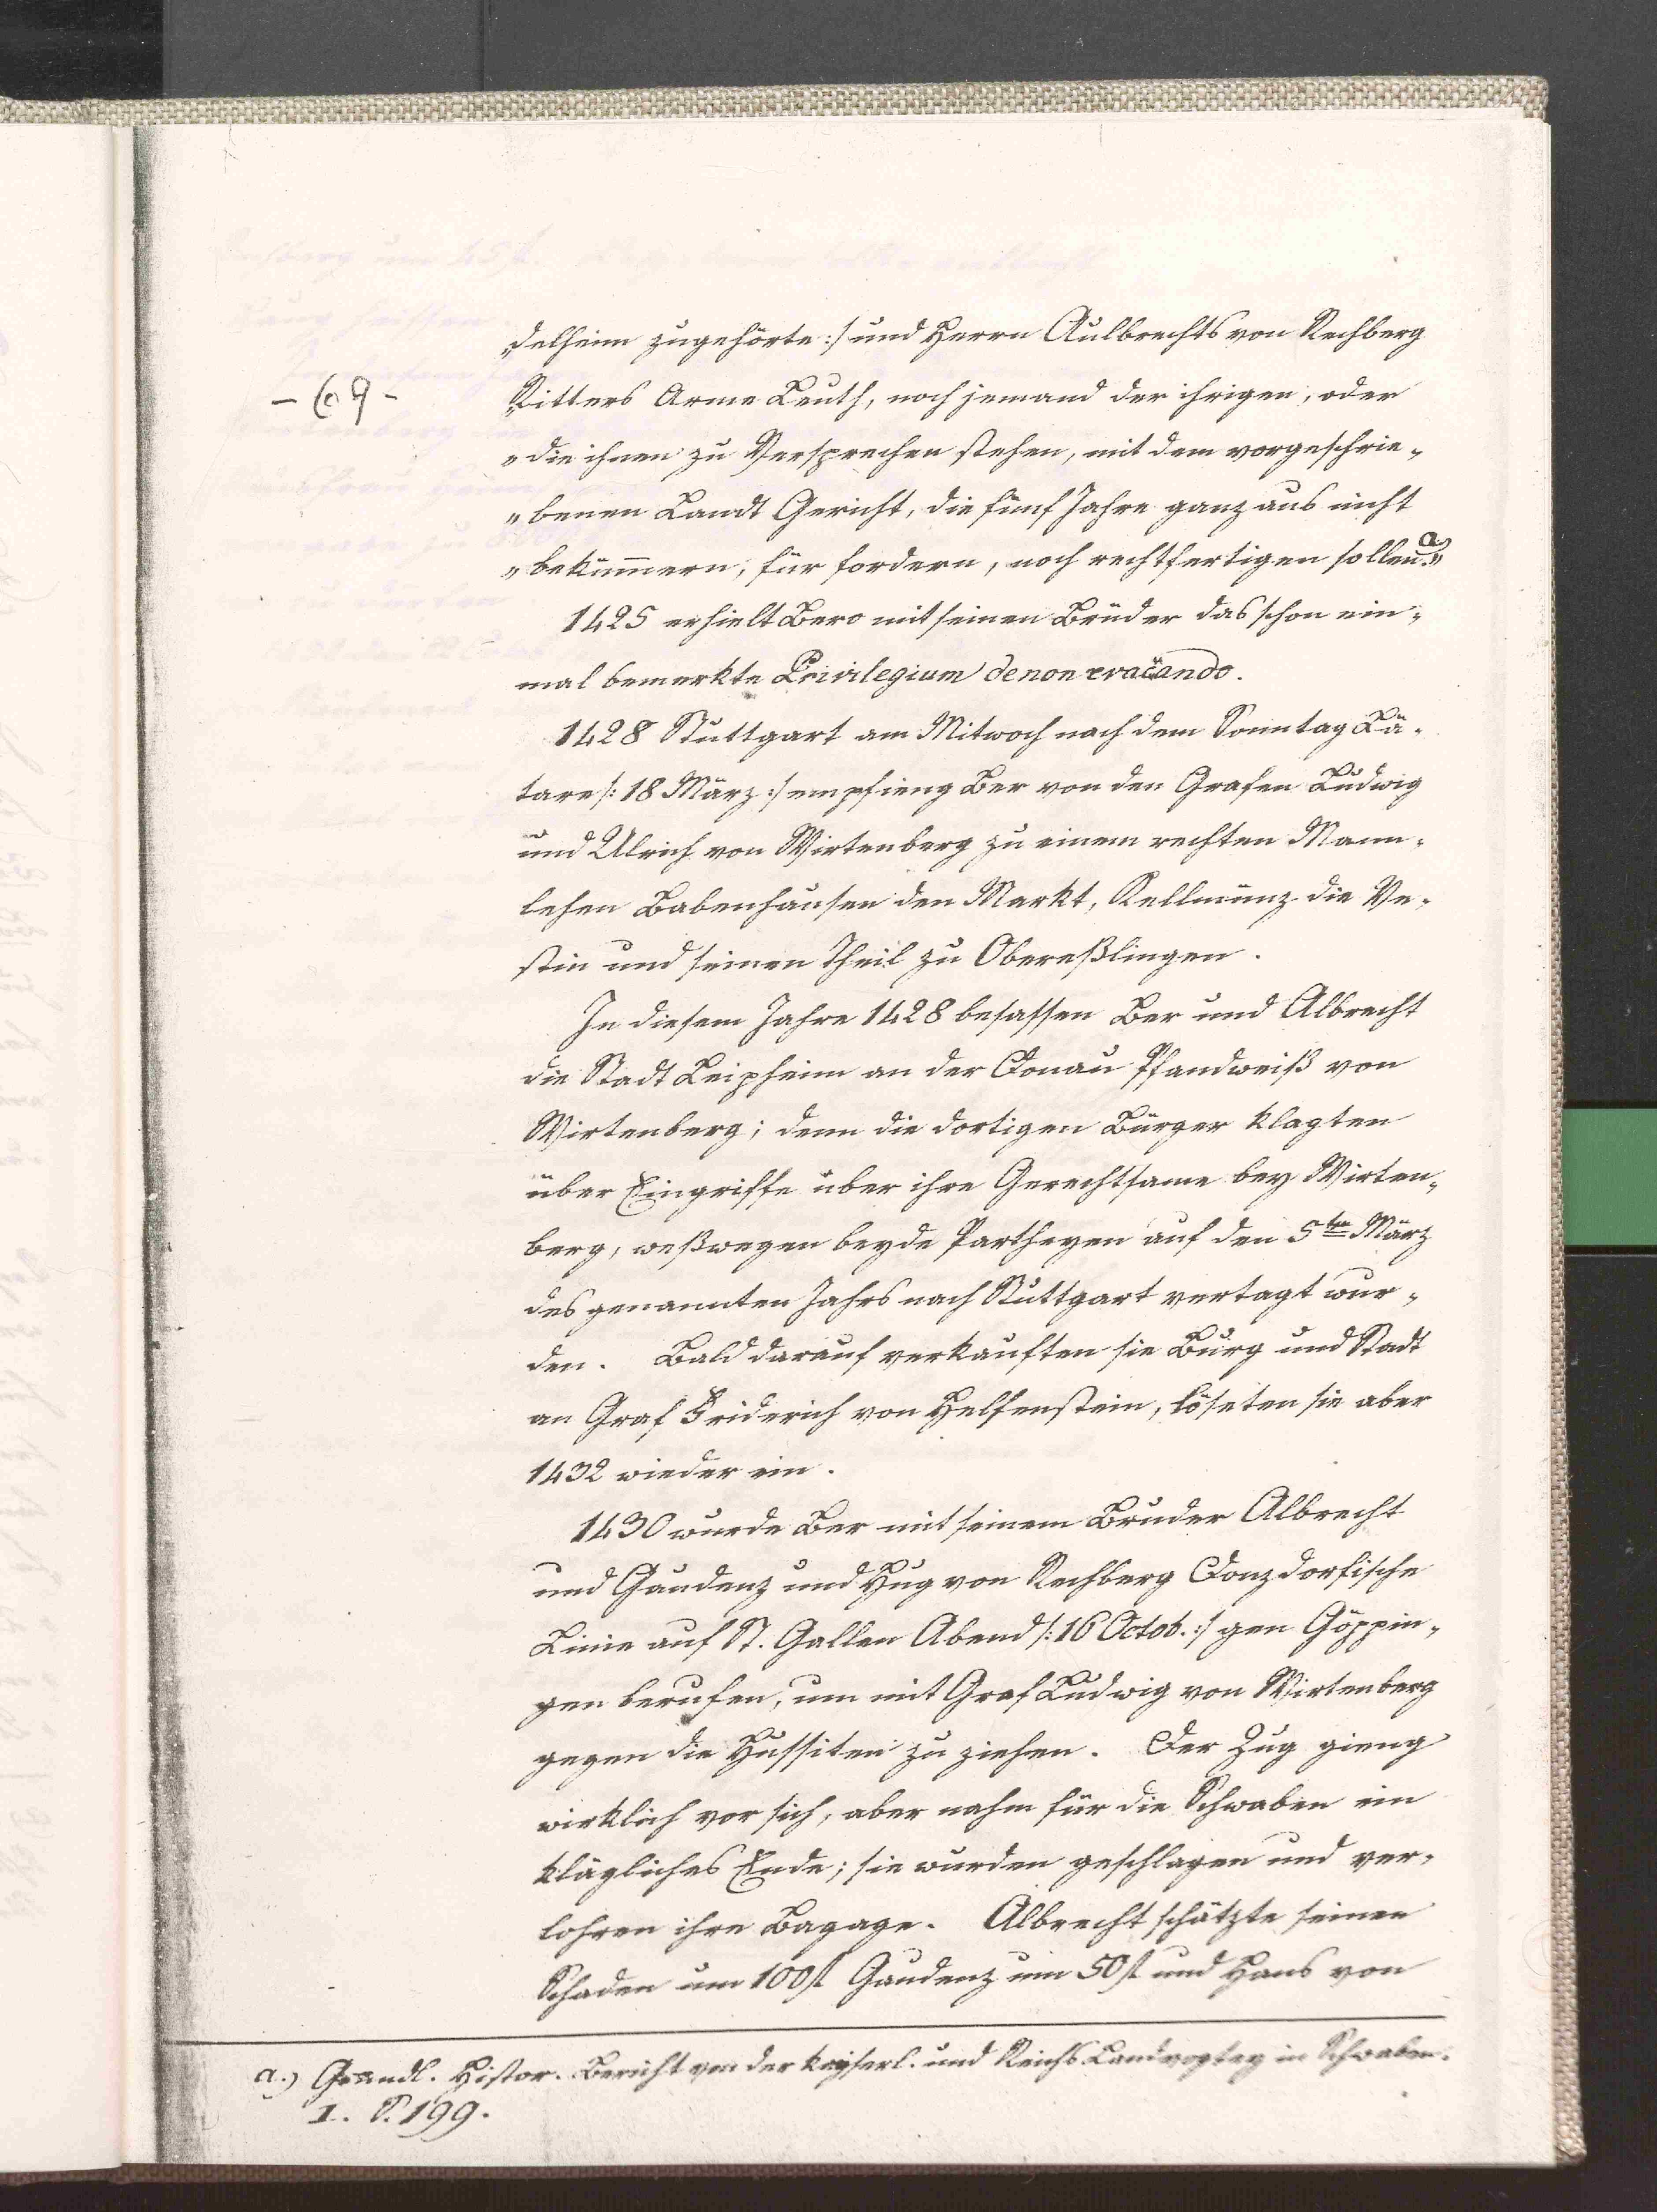 „delheim zugehörte :/ und Herrn Aulbrechts von Rechberg
- 69 -
„Ritters Arme Leuth, noch jemand der ihrigen, oder
„die ihnen zu Versprechen stehen, mit dem vorgeschrie„
„benen Landt Gericht, die fünf Jahre ganz aus nicht
„bekümmern, für fordern, noch rechtfertigen sollen a.“
1425 erhielt Bero mit seinen Brüder das schon ein„
mal bemerkte Privilegium de non evocando.
1428 Stuttgart am Mitwoch nach dem Sonntag Lä„
tare /: 18 März :/ empfieng Ber von den Grafen Ludwig
und Ulrich von Wirtenberg zu einem rechten Mann„
lehen Babenhausen den Markt, Kellmünz die Ve„
stin und seinen Theil zu Obereßlingen.
In diesem Jahre 1428 besassen Ber und Albrecht
die Stadt Leipheim an der Donau Pfandweiß von
Wirtenberg; denn die dortigen Bürger klagten
über Eingriffe über ihre Gerechtsame bey Wirten„
berg, weßwegen beyde Partheyen auf den 5ten März
des genannten Jahrs nach Stuttgart vertagt wur„
den. Bald darauf verkauften sie Burg und Stadt
an Graf Friderich von Helfenstein, löseten sie aber
1432 wieder ein.
1430 wurde Ber mit seinem Bruder Albrecht
und Gaudenz und Hug von Rechberg Donzdorfische
Linie auf St. Gallen Abend /: 16 Octob. :/ gen Göppin„
gen berufen, um mit Graf Ludwig von Wirtenberg
gegen die Hussiten zu ziehen. Der Zug gieng
wirklich vor sich, aber nahm für die Schwaben ein
klägliches Ende; sie wurden geschlagen und ver„
lohren ihre Bagage. Albrecht schätzte seinen
Schaden um 100 fl Gaudenz um 50 fl und Hans von
a.) Gründl. Histor. Bericht von der kayserl. und Reichs Landvogtey in Schwaben.
I. S. 199.